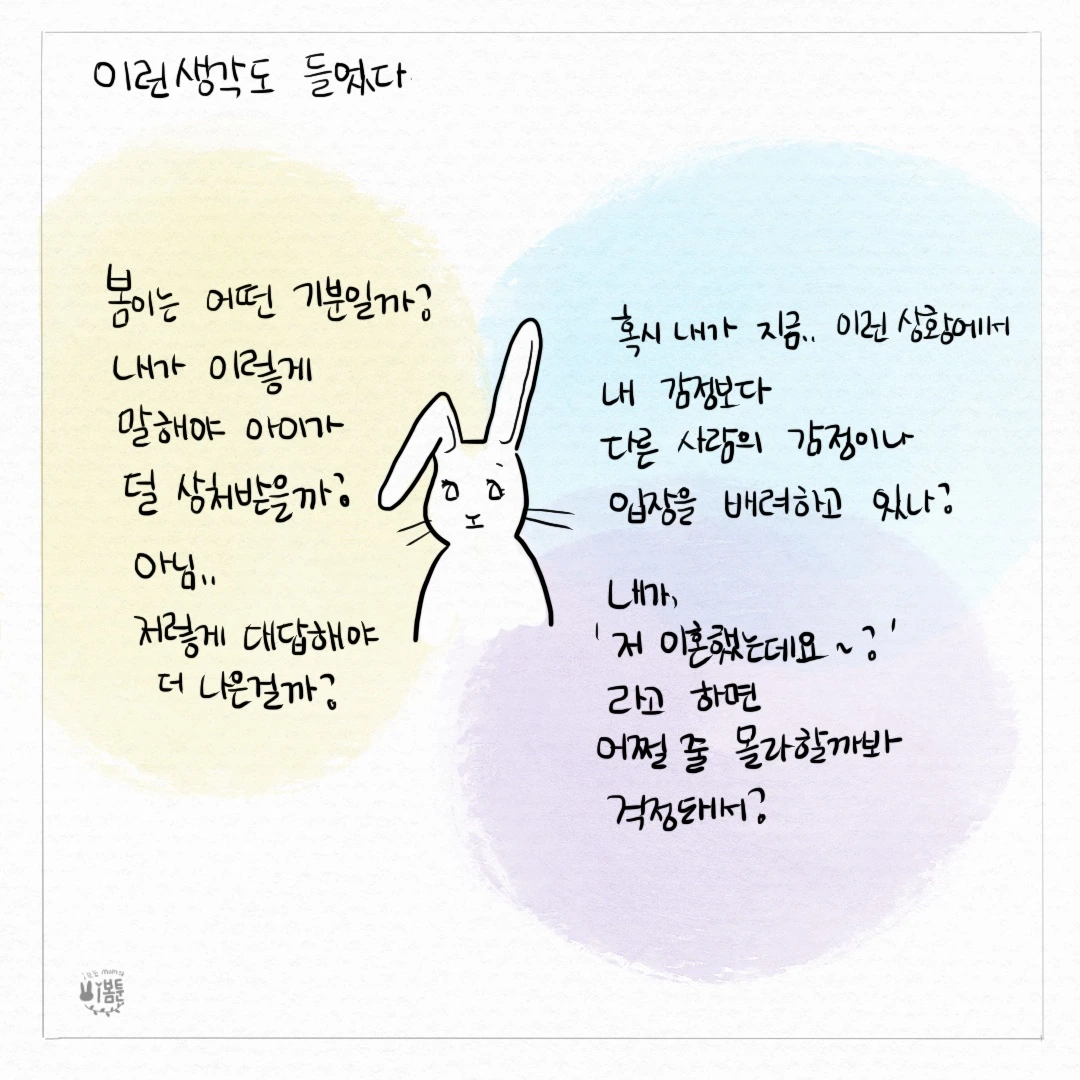 이런생각도 들었다.
봄이는 어떤 기분일까?
내가 이렇게
말해야 아이가
덜 상처받을까?
아님..
저렇게 대답해야
더 나은걸까?
혹시 내가 지금.. 이런 상황에서
내 감정보다
다른 사람의 감정이나
입장을 배려하고 있나?
내가,
'저 이혼했는데요~?'
라고 하면
어쩔 줄 몰라할까봐
걱정돼서?
봄툰